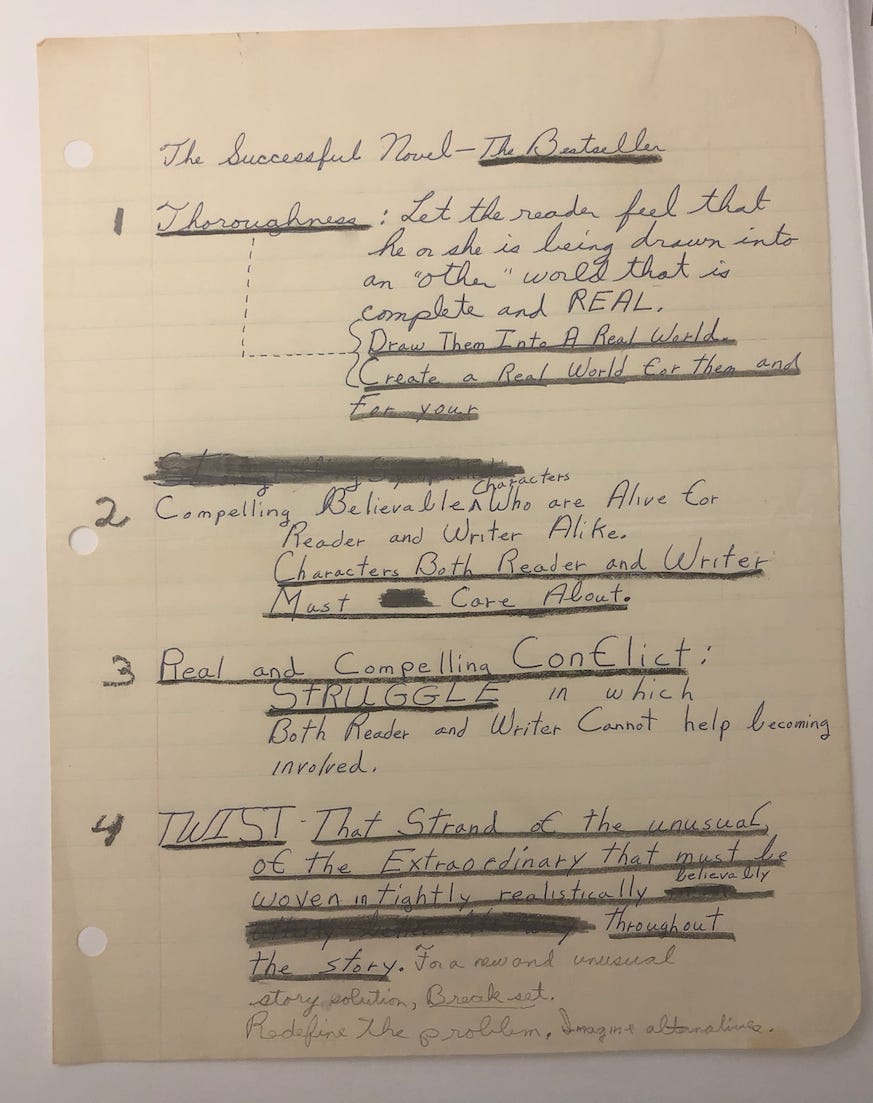 The Successful Novel — The Bestseller
1 Thoroughness : Let the reader feel that
he or she is being drawn into
an "other" world that is
complete and REAL.
Draw Them Into A Real World.
Create a Real World for them and
For your
Characters
2 Compelling Believable ^ Who are Alive for
Reader and Writer Alike.
Characters Both Reader and Writer
Must Care About.
3 Real and Compelling Conflict :
STRUGGLE in which
Both Reader and Writer Cannot help becoming
involved.
4 TWIST - That Strand of the unusual,
of the Extraordinary that must be
believably
woven in tightly realistically
throughout
the story. For a new and unusual
story solution, Break set.
Redefine the problem. Imagine alternatives.